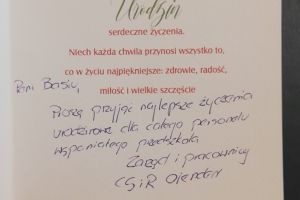 Urodzin
serdeczne życzenia.
Niech każda chwila przynosi wszystko to,
co w życiu najpiękniejsze: zdrowie, radość,
miłość i wielkie szczęście
Pani Basiu,
Proszę przyjąć najlepsze życzenia
urodzinowe dla całego personelu
wspaniałego przedszkola
Zarząd i pracownicy
CSiR Olender